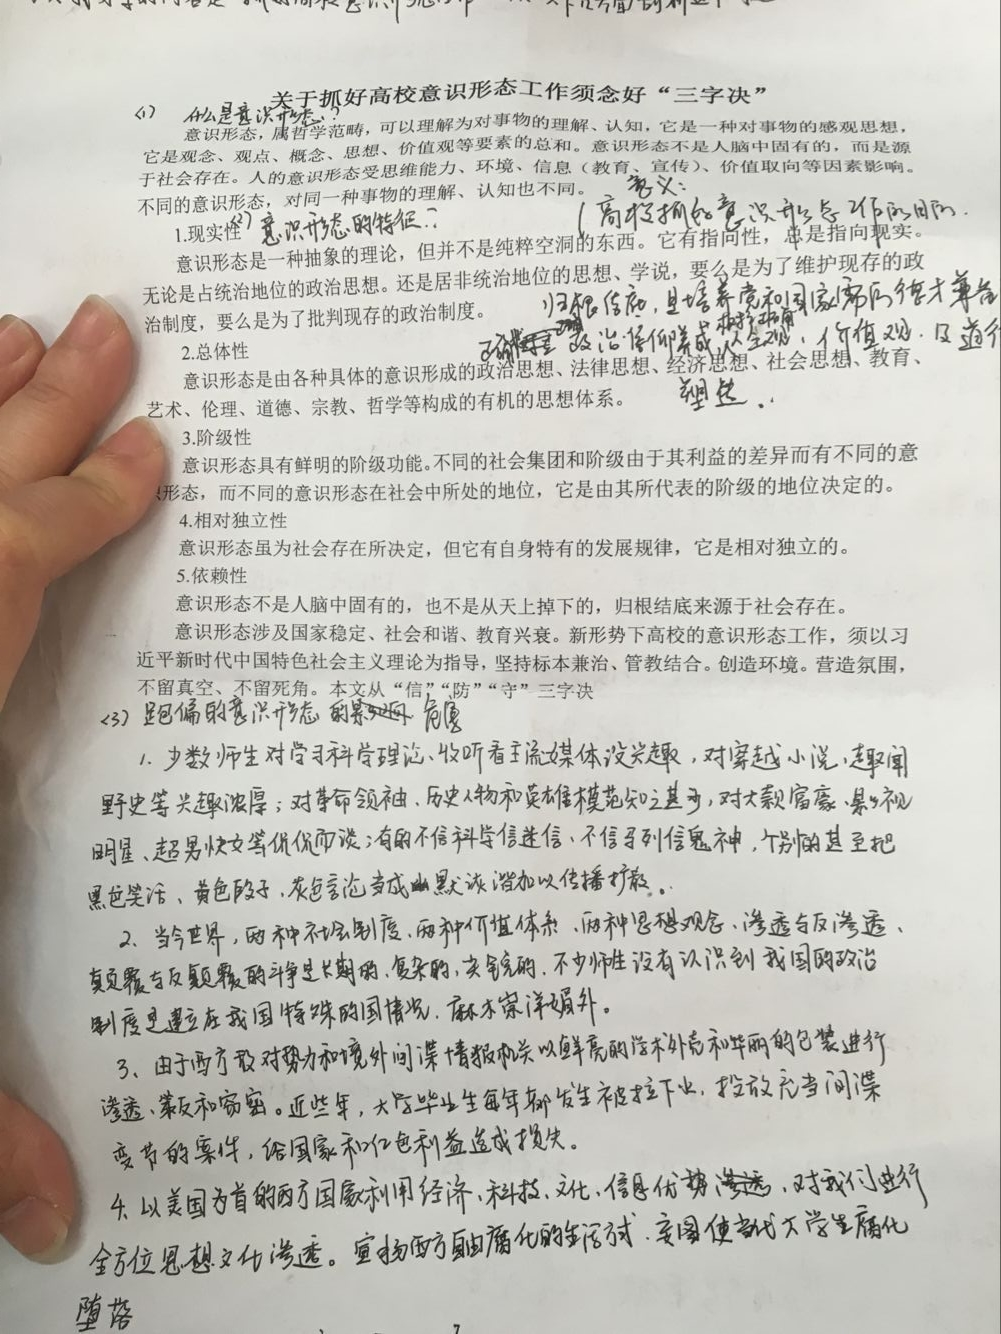 关于抓好高校意识形态工作须念好“三字决”
<1> 什么是意识形态？
意识形态，属哲学范畴，可以理解为对事物的理解、认知，它是一种对事物的感观思想，
它是观念、观点、概念、思想、价值观等要素的总和。意识形态不是人脑中固有的，而是源
于社会存在。人的意识形态受思维能力、环境、信息（教育、宣传）、价值取向等因素影响。
不同的意识形态，对同一种事物的理解、认知也不同。
意义：
高校抓好意识形态工作的目的.
<2> 意识形态的特征：
1.现实性
意识形态是一种抽象的理论，但并不是纯粹空洞的东西。它有指向性，总是指向现实。
无论是占统治地位的政治思想。还是居非统治地位的思想、学说，要么是为了维护现存的政
治制度，要么是为了批判现存的政治制度。
归根结底，是培养党和国家需的德才兼备
正确 政治信仰养成 人生观、价值观、及道德
塑造
2.总体性
意识形态是由各种具体的意识形成的政治思想、法律思想、经济思想、社会思想、教育、
艺术、伦理、道德、宗教、哲学等构成的有机的思想体系。
3.阶级性
意识形态具有鲜明的阶级功能。不同的社会集团和阶级由于其利益的差异而有不同的意
识形态，而不同的意识形态在社会中所处的地位，它是由其所代表的阶级的地位决定的。
4.相对独立性
意识形态虽为社会存在所决定，但它有自身特有的发展规律，它是相对独立的。
5.依赖性
意识形态不是人脑中固有的，也不是从天上掉下的，归根结底来源于社会存在。
意识形态涉及国家稳定、社会和谐、教育兴衰。新形势下高校的意识形态工作，须以习
近平新时代中国特色社会主义理论为指导，坚持标本兼治、管教结合。创造环境。营造氛围，
不留真空、不留死角。本文从“信”“防”“守”三字决
<3> 跑偏的意识形态的影响 危害
1. 少数师生对学习科学理论、收听看主流媒体没兴趣，对穿越小说、趣闻
野史等兴趣浓厚；对革命领袖、历史人物和英雄模范知之甚少，对大款富豪、影视
明星、超男快女等侃侃而谈；有的不信科学信迷信、不信马列信鬼神，个别的甚至把
黑色笑话、黄色段子、灰色言论当成幽默诙谐加以传播扩散。
2、当今世界，两种社会制度、两种价值体系、两种思想观念、渗透与反渗透、
颠覆与反颠覆的斗争是长期的、复杂的、尖锐的，不少师生没有认识到我国的政治
制度是建立在我国特殊的国情况，麻木崇洋媚外。
3、由于西方敌对势力和境外间谍情报机关以鲜亮的学术外壳和华丽的包装进行
渗透、策反和窃密。近些年，大学毕业生每年都发生被拉下水，投敌充当间谍
变节的案件，给国家和红色利益造成损失。
4. 以美国为首的西方国家利用经济、科技、文化、信息优势渗透，对我们进行
全方位思想文化渗透。宣扬西方自由腐化的生活方式，妄图使当代大学生腐化
堕落